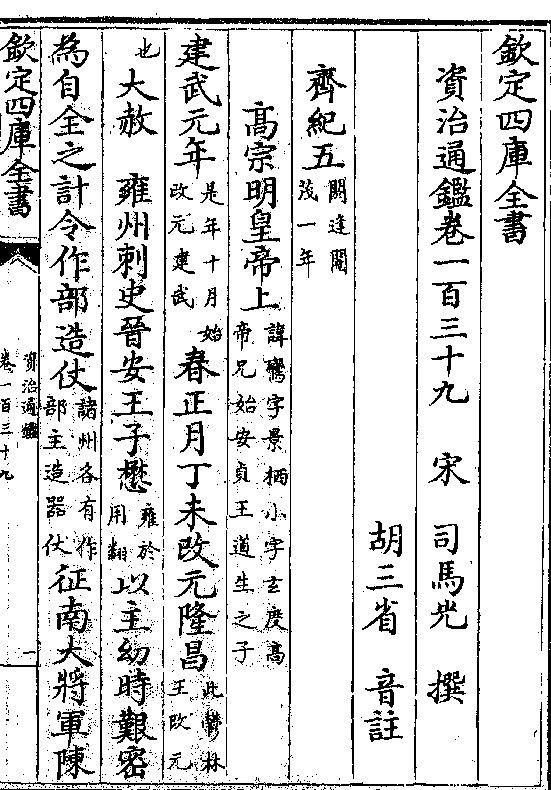 欽定四庫全書
資治通鑑卷一百三十九 宋 司馬光 撰
胡三省 音註
齊紀五閼逢閹茂一年
高宗明皇帝上諱鸞字景栖小字玄度高帝兄始安貞王道生之子
建武元年是年十月始改元建武春正月丁未改元隆昌此鬱林王改元
也大赦 雍州刺史晉安王子懋雍於用翻以主幼時艱密
為自全之計令作部造仗諸州各有作部主造器仗征南大將軍陳
欽定四庫全書
資治通鑑
卷一百三十九
一